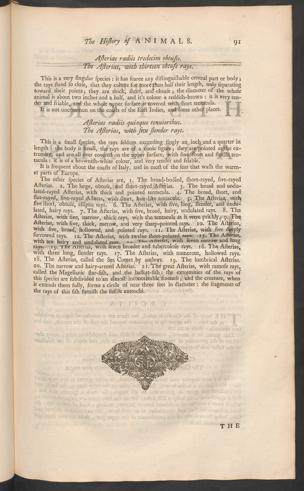 The History of ANIMALS. 91
Asterias radiis tredecim obtusis.
The Asterias, with thirteen obtuse rays.
This is a very singular species: it has scarce any distinguishable central part or body;
the rays stand so close, that they cohere for more than half their length, only separating
toward their points; they are thick, short, and obtuse; the diameter of the whole
animal is about two inches and a half, and it's colour a reddish brown: it is very
and friable, and the whole upper surface is covered with short tentacula.
It is not uncommon on the coasts of the East Indies, and some other places.
Asterias radiis quinque tenuioribus.
The Asterias, with five slender rays.
This is a small species, the rays seldom exceeding singly an inch and a quarter in
length: the body is small, the rays are of a conic figure,
and all over covered on the upper surface, with
tacula: it is of a brownish colour, and very tender and friable.
It is frequent about the coasts of Italy, and in most of the seas that wash the warm-
er parts of Europe.
The other species of Asterias are, 1. The broad-bodied, short-rayed, five-rayed
Asterias. 2. The large, obtuse, and short-rayed Asterias. 3. The broad and undu-
lated-rayed Asterias, with thick and pointed tentacula. 4. The broad, short, and
five-rayed Asterias, with short, 5. The Asterias, with
five short, obtuse, rays. 6. The Asterias, with five, long, slender, and undu-
lated, hairy rays. 7. The Asterias, with five, broad, hairy, undulated rays. 8. The
Asterias, with five, narrow, thick rays, with the tentacula as it were prickly. 9. The
Asterias, with five, thick, narrow, and very sharp-pointed rays. 10. The Asterias,
with five, broad, hollowed, and pointed rays. 11. The Asterias, with five deeply
furrowed rays. 12. The Asterias, with twelve short-pointed rays. 13. The Asterias,
with ten hairy and undulated rays. with seven narrow and long
rays. 15. The Asterias, with seven broader and tuberculose rays. 16. The Asterias,
with three long, slender rays. 17. The Asterias, with numerous, hollowed rays.
18. The Asterias, called the Sea Comet by authors. 19. The lumbrical Asterias.
20. The narrow and hairy-armed Asterias. 21. The great Asterias, with ramose rays,
called the Magellanic star-fish, and the basket-fish: the extremities of the rays of
this species are subdivided to an almost inconceivable fineness; and the creature, when
it extends them fully, forms a circle of near three feet in diameter: the fragments of
the rays of this fish furnish the
THE